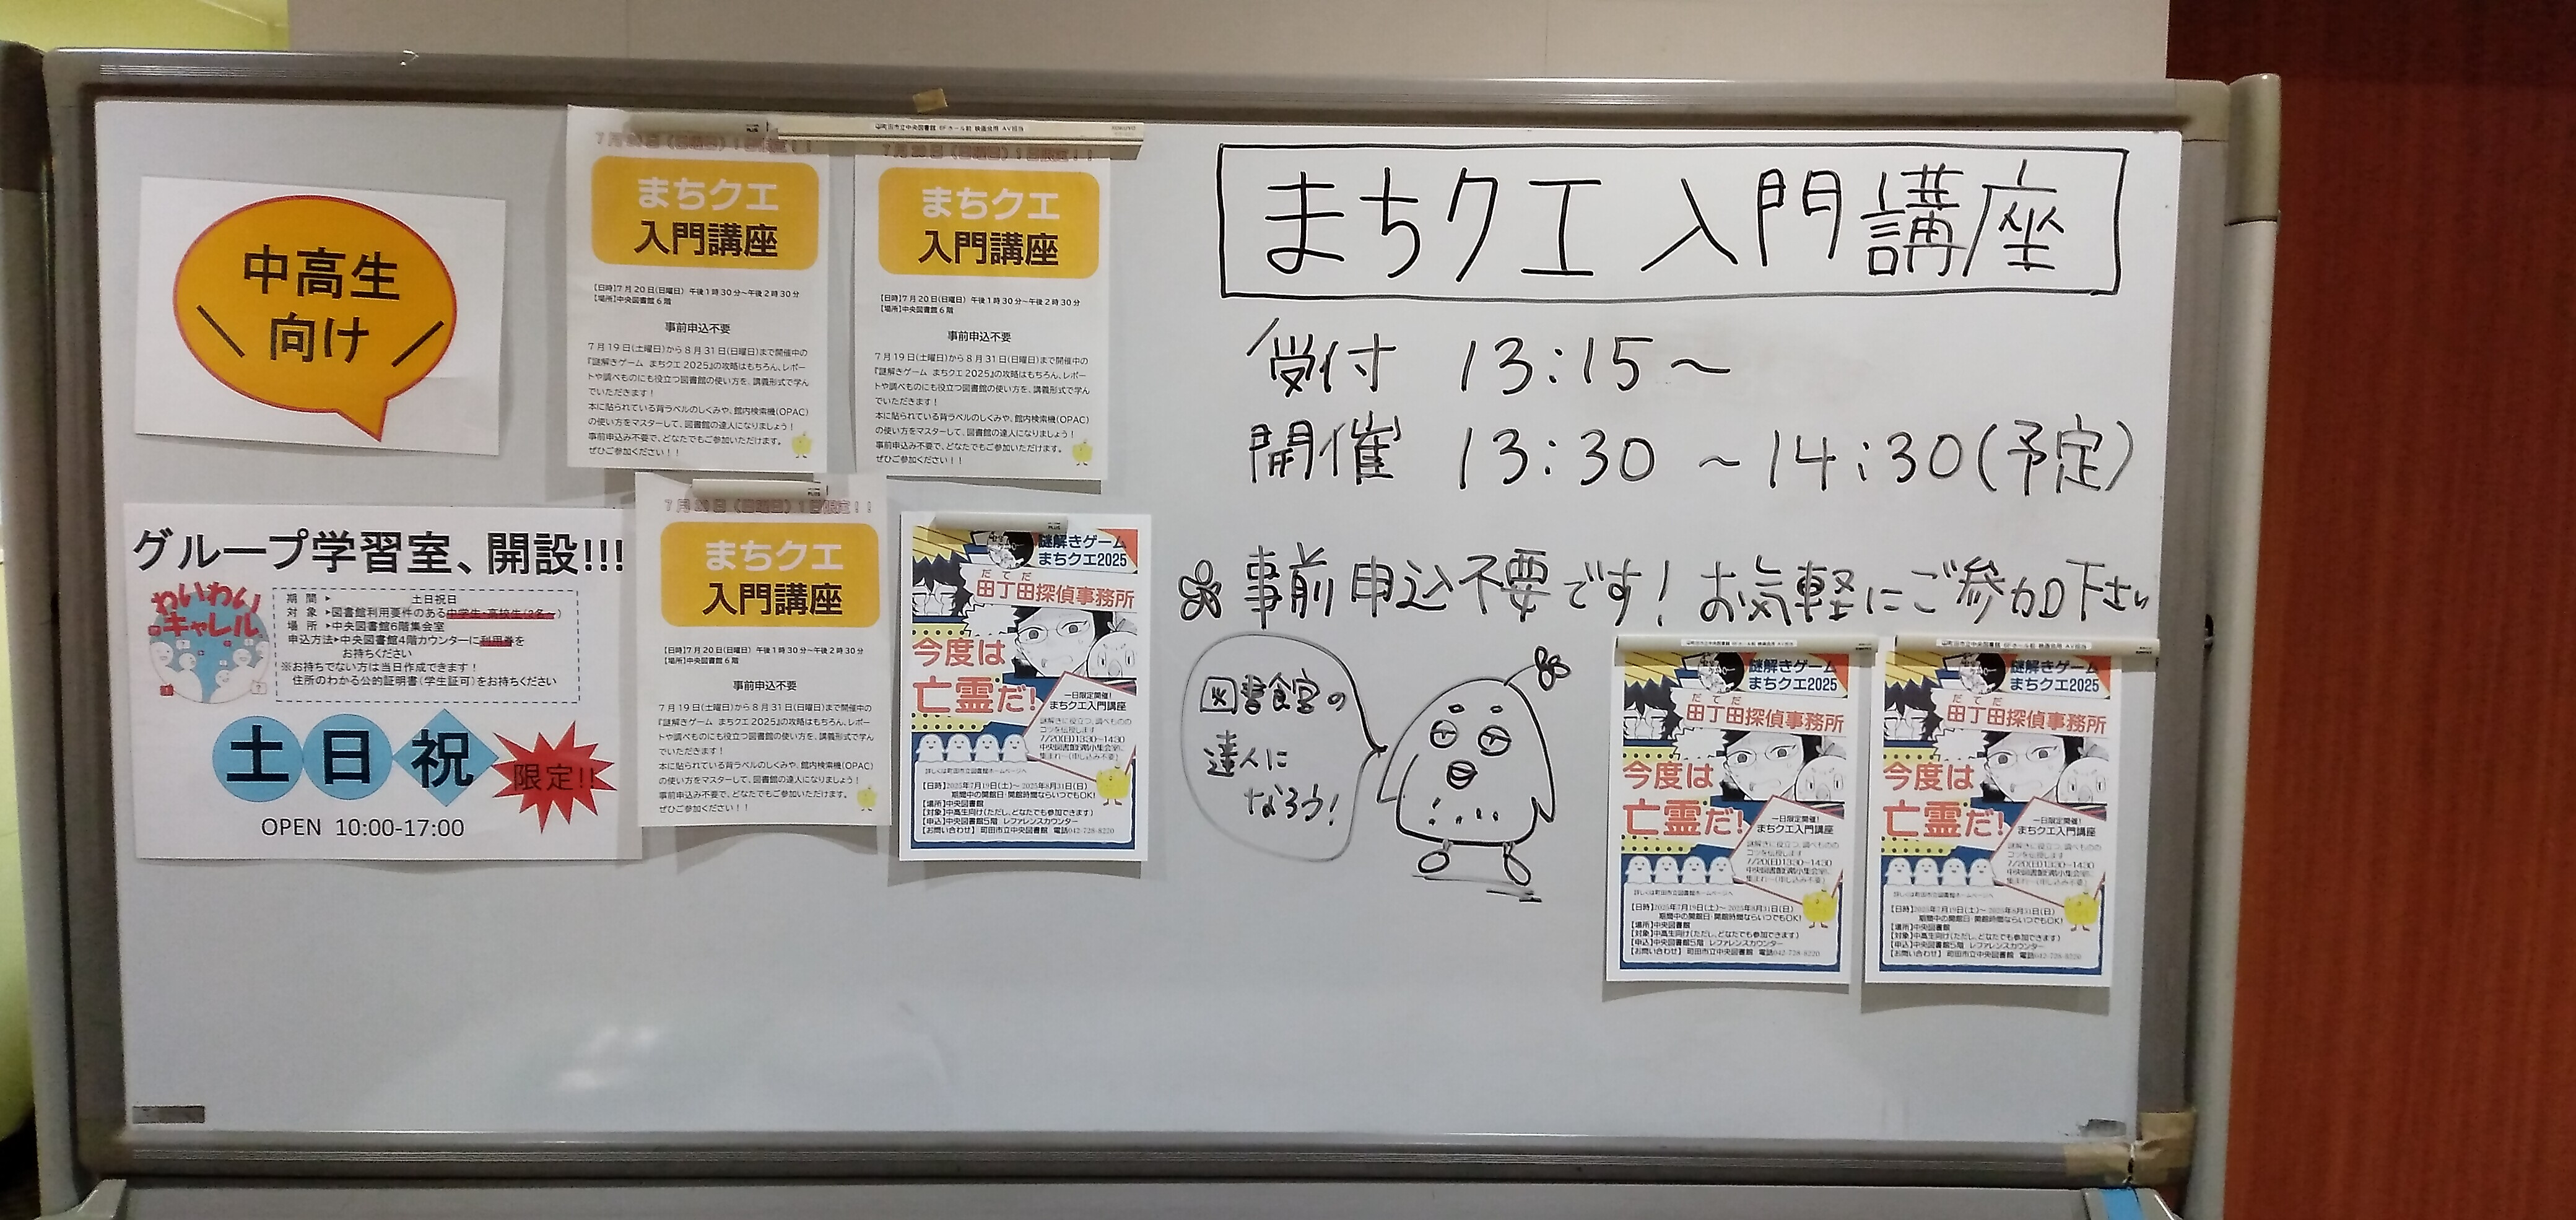 中高生
向け
グループ学習室、開設!!!
わいわい
キャレル
期 間 ▶ 土日祝日
対 象 ▶図書館利用要件のある中学生・高校生(2名～)
場 所 ▶中央図書館6階集会室
申込方法▶中央図書館4階カウンターに利用券を
お持ちください
※お持ちでない方は当日作成できます！
住所のわかる公的証明書(学生証可)をお持ちください
土日祝
限定!!
OPEN 10:00-17:00
7月20日(日曜日)1日限定！！
まちクエ
入門講座
【日時】7月20日(日曜日) 午後1時30分～午後2時30分
【場所】中央図書館6階
事前申込不要
7月19日(土曜日)から8月31日(日曜日)まで開催中の
『謎解きゲーム まちクエ2025』の攻略はもちろん、レポー
トや調べものにも役立つ図書館の使い方を、講義形式で学ん
でいただきます！
本に貼られている背ラベルのしくみや、館内検索機(OPAC)
の使い方をマスターして、図書館の達人になりましょう！
事前申込み不要で、どなたでもご参加いただけます。
ぜひご参加ください！！
7月20日(日曜日)1日限定！！
まちクエ
入門講座
【日時】7月20日(日曜日) 午後1時30分～午後2時30分
【場所】中央図書館6階
事前申込不要
7月19日(土曜日)から8月31日(日曜日)まで開催中の
『謎解きゲーム まちクエ2025』の攻略はもちろん、レポー
トや調べものにも役立つ図書館の使い方を、講義形式で学ん
でいただきます！
本に貼られている背ラベルのしくみや、館内検索機(OPAC)
の使い方をマスターして、図書館の達人になりましょう！
事前申込み不要で、どなたでもご参加いただけます。
ぜひご参加ください！！
7月20日(日曜日)1日限定！！
まちクエ
入門講座
【日時】7月20日(日曜日) 午後1時30分～午後2時30分
【場所】中央図書館6階
事前申込不要
7月19日(土曜日)から8月31日(日曜日)まで開催中の
『謎解きゲーム まちクエ2025』の攻略はもちろん、レポー
トや調べものにも役立つ図書館の使い方を、講義形式で学ん
でいただきます！
本に貼られている背ラベルのしくみや、館内検索機(OPAC)
の使い方をマスターして、図書館の達人になりましょう！
事前申込み不要で、どなたでもご参加いただけます。
ぜひご参加ください！！
謎解きゲーム
まちクエ2025
だてだ
田丁田探偵事務所
今度は
亡霊だ!
一日限定開催！
まちクエ入門講座
謎解きに役立つ、調べものの
コツを伝授します
7/20(日)13:30～14:30
中央図書館6階小集会室に
集まれー(申し込み不要)
詳しくは町田市立図書館ホームページへ
【日時】2025年7月19日(土)～2025年8月31日(日)
期間中の開館日・開館時間ならいつでもOK!
【場所】中央図書館
【対象】中高生向け(ただし、どなたでも参加できます)
【申込】中央図書館5階 レファレンスカウンター
【お問い合わせ】町田市立中央図書館 電話042-728-8220
まちクエ 入門講座
受付 13:15～
開催 13:30～14:30(予定)
事前申込不要です！お気軽にご参加下さい
図書館の
達人に
なろう！
謎解きゲーム
まちクエ2025
だてだ
田丁田探偵事務所
今度は
亡霊だ!
一日限定開催！
まちクエ入門講座
謎解きに役立つ、調べものの
コツを伝授します
7/20(日)13:30～14:30
中央図書館6階小集会室に
集まれー(申し込み不要)
詳しくは町田市立図書館ホームページへ
【日時】2025年7月19日(土)～2025年8月31日(日)
期間中の開館日・開館時間ならいつでもOK!
【場所】中央図書館
【対象】中高生向け(ただし、どなたでも参加できます)
【申込】中央図書館5階 レファレンスカウンター
【お問い合わせ】町田市立中央図書館 電話042-728-8220
謎解きゲーム
まちクエ2025
だてだ
田丁田探偵事務所
今度は
亡霊だ!
一日限定開催！
まちクエ入門講座
謎解きに役立つ、調べものの
コツを伝授します
7/20(日)13:30～14:30
中央図書館6階小集会室に
集まれー(申し込み不要)
詳しくは町田市立図書館ホームページへ
【日時】2025年7月19日(土)～2025年8月31日(日)
期間中の開館日・開館時間ならいつでもOK!
【場所】中央図書館
【対象】中高生向け(ただし、どなたでも参加できます)
【申込】中央図書館5階 レファレンスカウンター
【お問い合わせ】町田市立中央図書館 電話042-728-8220